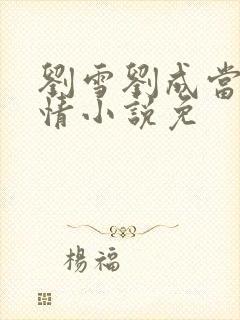 劉雪劉成當
情小說免
楊福